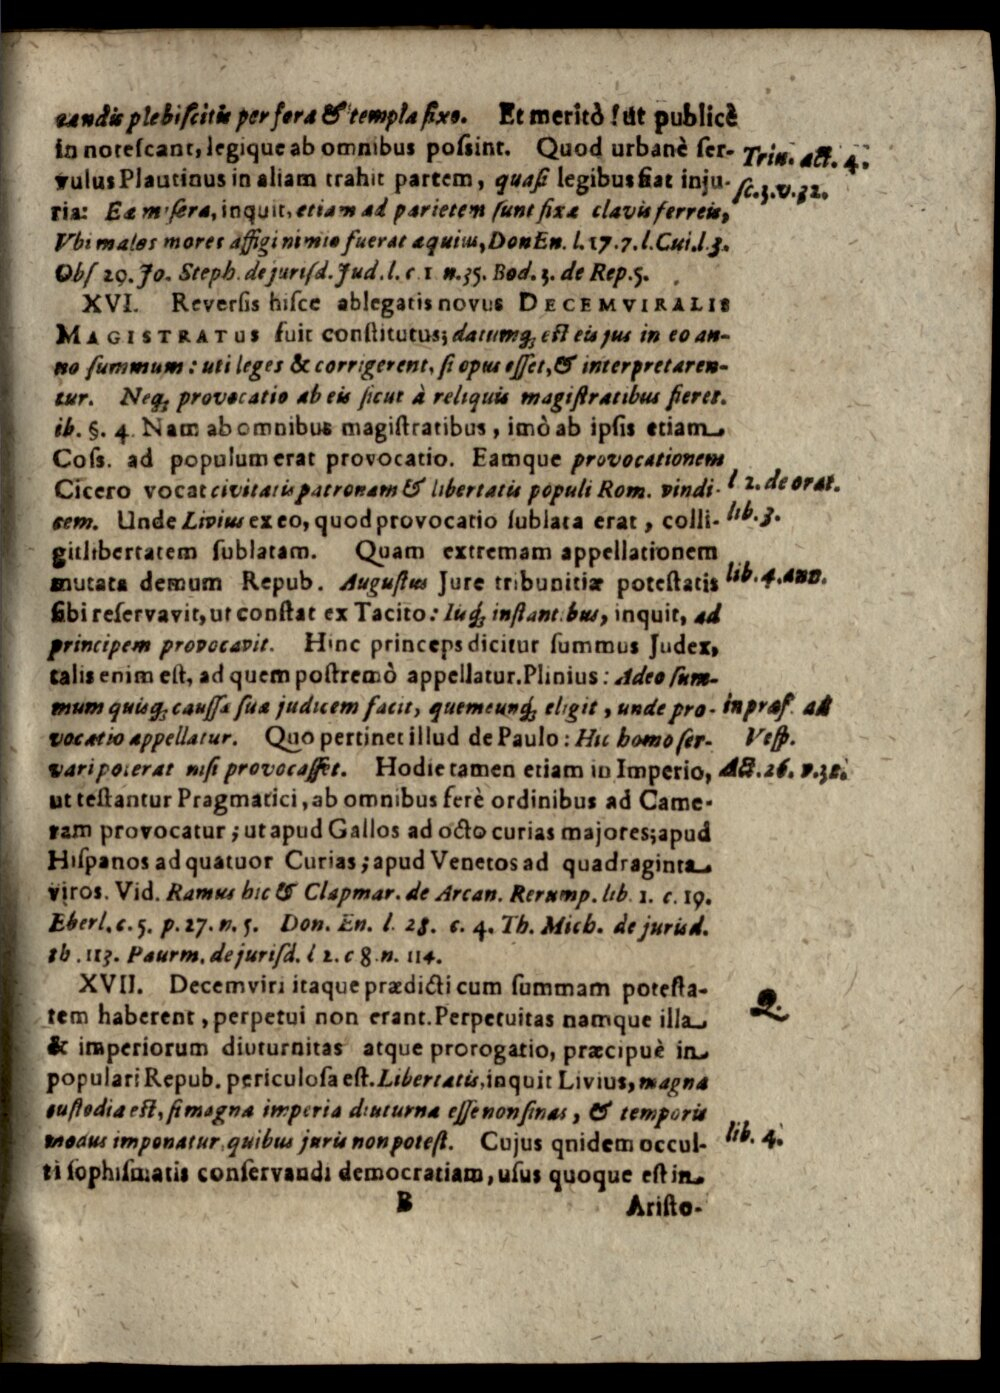 candis plebiſcitis per fora & templa fixo. Et meritò! ut publicè
in noteſcant, legique ab omnibus poſsint. Quod urbanè ſer-
Trin. act. 4.
vulus Plautinus in aliam trahit partem, quaſi legibus fiat inju-
ſc. 3. v. 32.
ria: Ea miſera, inquit, etiam ad parietem ſunt fixa clavis ferreis,
Vbi malos mores affigi nimio fuerat aquius, Don En. l. 17. 7. l. Cui. l. 3.
Obſ 20. Jo. Steph. de juriſd. Jud. l. c 1 n. 35. Bod. 3. de Rep. 5.
XVI. Reverſis hiſce ablegatis novus DECEMVIRALIS
MAGISTRATUS fuit conſtitutus; datumq́; eſt eis jus in eo an-
no ſummum: uti leges & corrigerent, ſi opus eſſet, & interpretaren-
tur. Neq́; provocatio ab eis ſicut à reliquis magiſtratibus fieret.
ib. §. 4. Nam ab omnibus magiſtratibus, imò ab ipſis etiam
Coſſ. ad populum erat provocatio. Eamque provocationem
Cicero vocat civitatis patronam & libertatis populi Rom. vindi-
l 2. de orat.
cem. Unde Livius ex eo, quod provocatio ſublata erat, colli-
lib. 3.
git libertatem ſublatam. Quam extremam appellationem
mutata demum Repub. Auguſtus Jure tribunitiæ poteſtatis
lib. 4. ann.
ſibi reſervavit, ut conſtat ex Tacito: Iuq́; inſtantibus, inquit, ad
principem provocavit. Hinc princeps dicitur ſummus Judex,
talis enim eſt, ad quem poſtremò appellatur. Plinius: Adeo ſum-
mum quisq́; cauſſa ſua judicem facit, quemcunq́; eligit, unde pro-
in præf. ad
vocatio appellatur. Quo pertinet illud de Paulo: Hic homo ſer-
Veſp.
vari poterat niſi provocaſſet. Hodie tamen etiam in Imperio,
Act. 26. v. 32.
ut teſtantur Pragmatici, ab omnibus ferè ordinibus ad Came-
ram provocatur; ut apud Gallos ad octo curias majores; apud
Hiſpanos ad quatuor Curias; apud Venetos ad quadraginta
viros. Vid. Ramus hic & Clapmar. de Arcan. Rerump. lib. 1. c. 19.
Eberl. c. 5. p. 27. n. 5. Don. En. l. 28. c. 4. Th. Mich. de jurisd.
th. 113. Paurm. de juriſd. l 2. c 8. n. 114.
XVII. Decemviri itaque prædicti cum ſummam poteſta-
2.
tem haberent, perpetui non erant. Perpetuitas namque illa
& imperiorum diuturnitas atque prorogatio, præcipuè in
populari Repub. periculoſa eſt. Libertatis, inquit Livius, magna
cuſtodia eſt, ſi magna imperia diuturna eſſe non ſinas, & temporis
modus imponatur, quibus juris non poteſt. Cujus qnidem occul-
lib. 4.
ti ſophiſmatis conſervandi democratiam, uſus quoque eſt in
B
Ariſto-